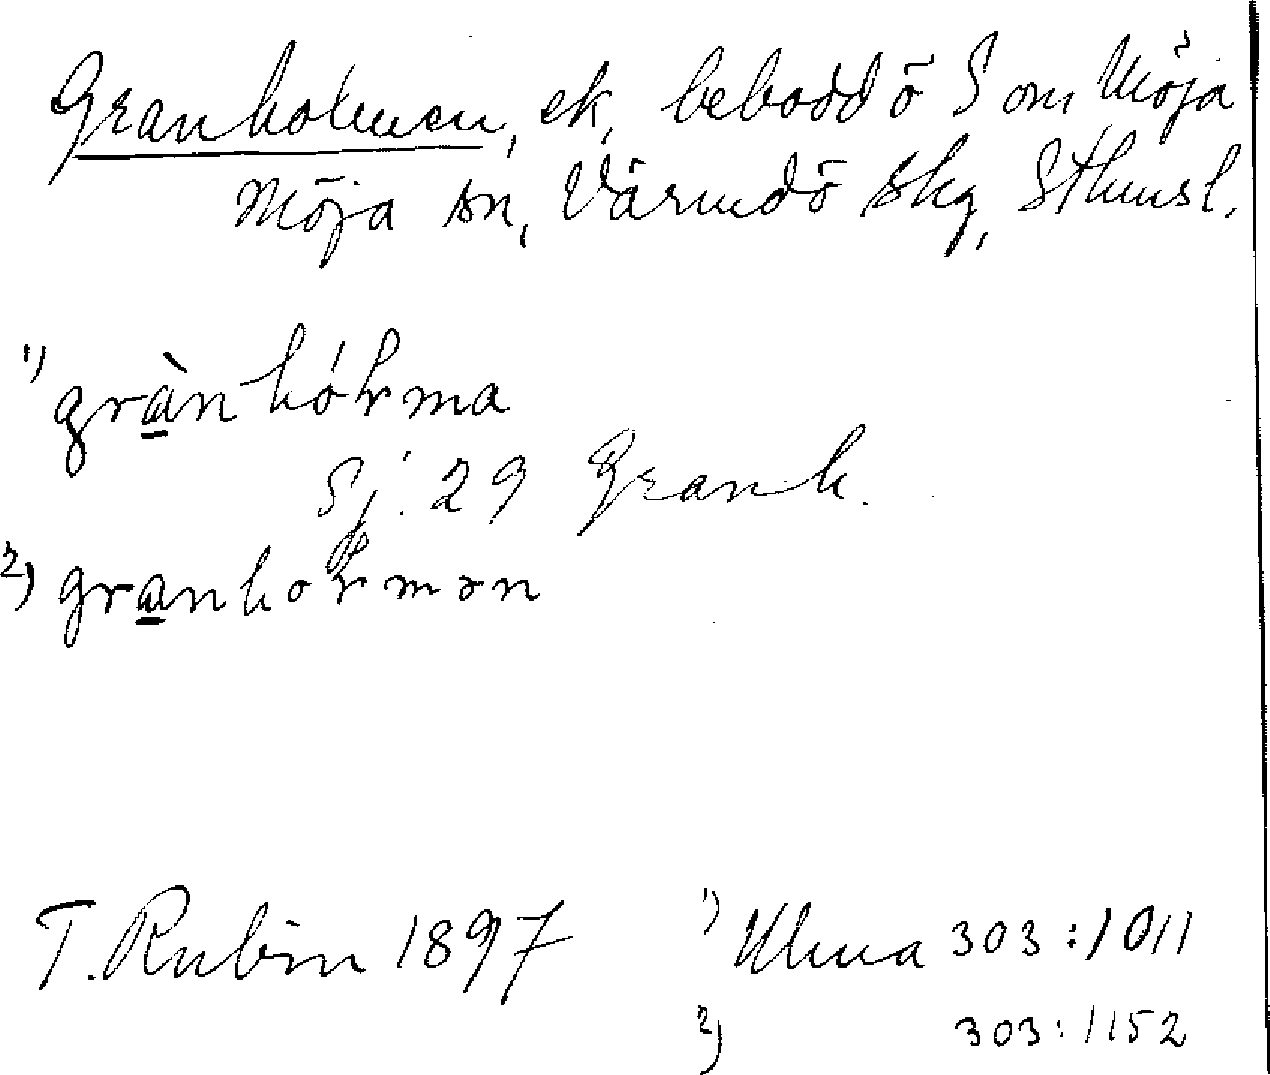 Granholmen, ek, bebodd ö S om Möja
Möja sn, Värmdö skg, Sthmsl.
1) grànhóɬma
Sj. 29 Granh.
2) granhoɬmən
T. Rubin 1897 1) Ulma 303:1011
2) 303:1152